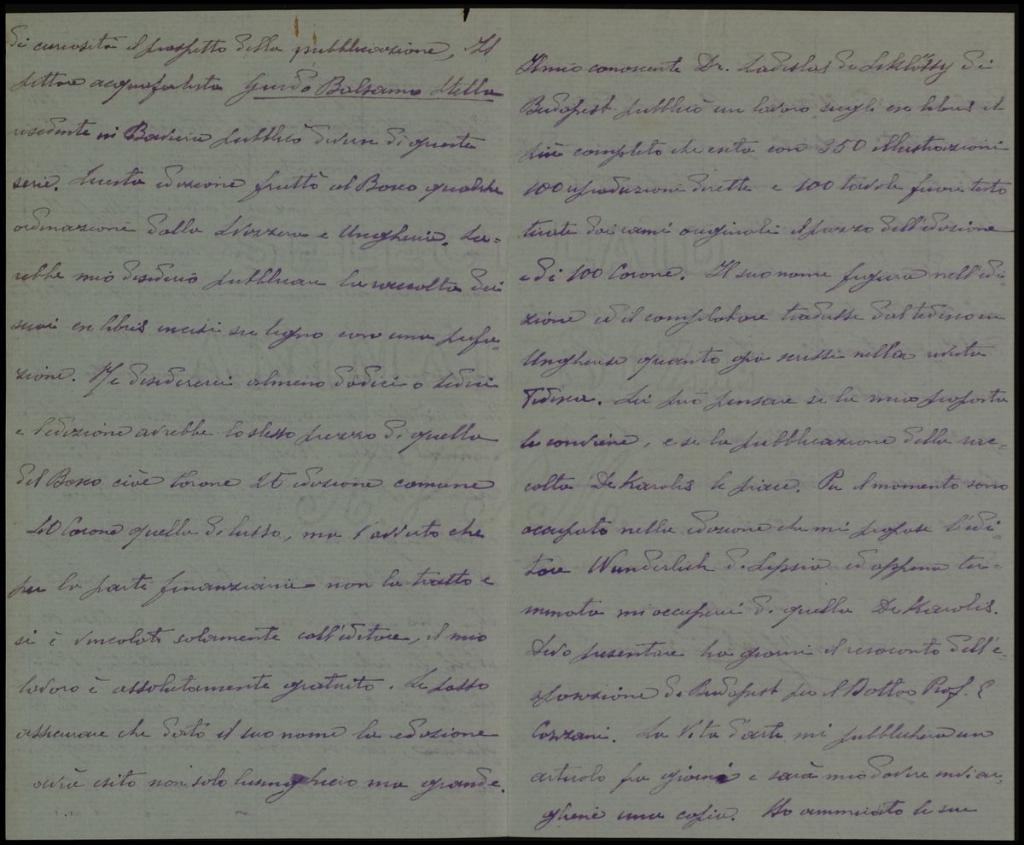 di curiosità il prospetto della pubblicazione, Il
pittore acquafortista Guido Balsamo Stella
residente in Baviera pubblicò diverse di queste
serie. Questa edizione fruttò al Bosco qualche
ordinazione dalla Svizzera e Ungheria. Sa-
rebbe mio desiderio pubblicare la raccolta dei
suoi ex libris incisi su legno con una prefa-
zione. Ne desidererei almeno dodici o sedici
e l'edizione avrebbe lo stesso prezzo di quella
del Bosco cioè Corone 25 edizione comune
40 Corone quella di lusso, ma l'avverto che
per la parte finanziaria non la tratto e
si è vincolati solamente coll'editore, il mio
lavoro è assolutamente gratuito. Le posso
assicurare che dato il suo nome la edizione
avrà esito non solo lusinghiero ma grande.
Il mio conoscente Dr. Ladislas de Siklóssy di
Budapest pubblicò un lavoro sugli ex libris il
più completo che esita con 350 illustrazioni
100 riproduzioni dirette e 100 tavole fuori testo
tirate dai rami originali il prezzo dell'edizione
è di 100 Corone. Il suo nome figura nell'edi-
zione ed il compilatore tradusse dal tedesco in
Ungherese quanto già scrissi nella rivista
Tedesca. Lei può pensare se la mia proposta
le conviene, e se la pubblicazione della rac-
colta De Karolis le piace. Per il momento sono
occupato nella edizione che mi propose l'edi-
tore Wunderlich di Lipsia ed appena ter-
minata mi occuperei di quella De Karolis.
Devo presentare fra giorni il resoconto dell'e-
sposizione di Budapest per il Dottor Prof. E
Cozzani. La Vita d'arte mi pubblicherà un
articolo fra giorni e sarà mio dovere inviar-
gliene una copia. Ho ammirato le sue